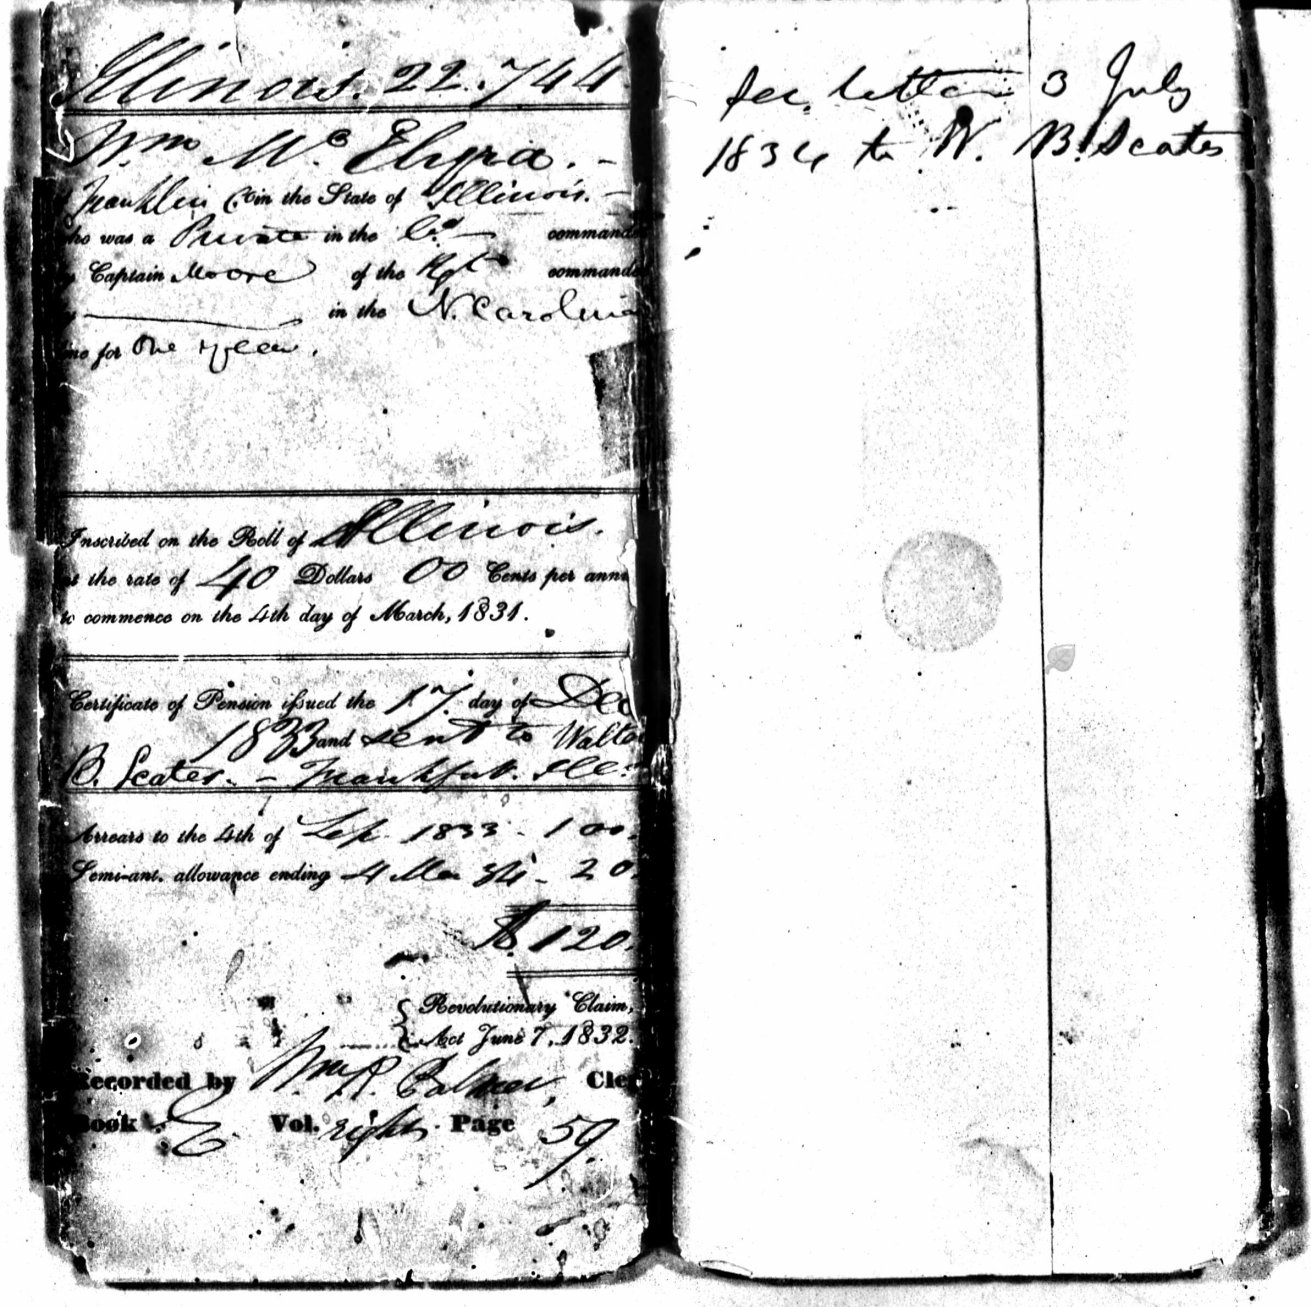 Illinois. 22.744
Wm Mc Elyea. -
Franklin Co in the State of Illinois. -
who was a Private in the Co - commanded
by Captain Moore of the Rgt commanded
by in the N. Carolina
line for One Year.
Inscribed on the Roll of Illinois.
at the rate of 40 Dollars 00 Cents per annu
to commence on the 4th day of March, 1831.
Certificate of Pension issued the 17. day of Dec
1833 and sent to Walter
B. Scates. - Frankfort. Ills.
Arrears to the 4th of Sep. 1833 - 100.
Semi-ant. allowance ending 4 Mar 34 - 20.
$ 120.
Revolutionary Claim,
Act June 7, 1832.
Recorded by Wm R. Palmer, Cler
Book E. Vol. Page 59.
See letter 3 July
1834 to W. B. Scates